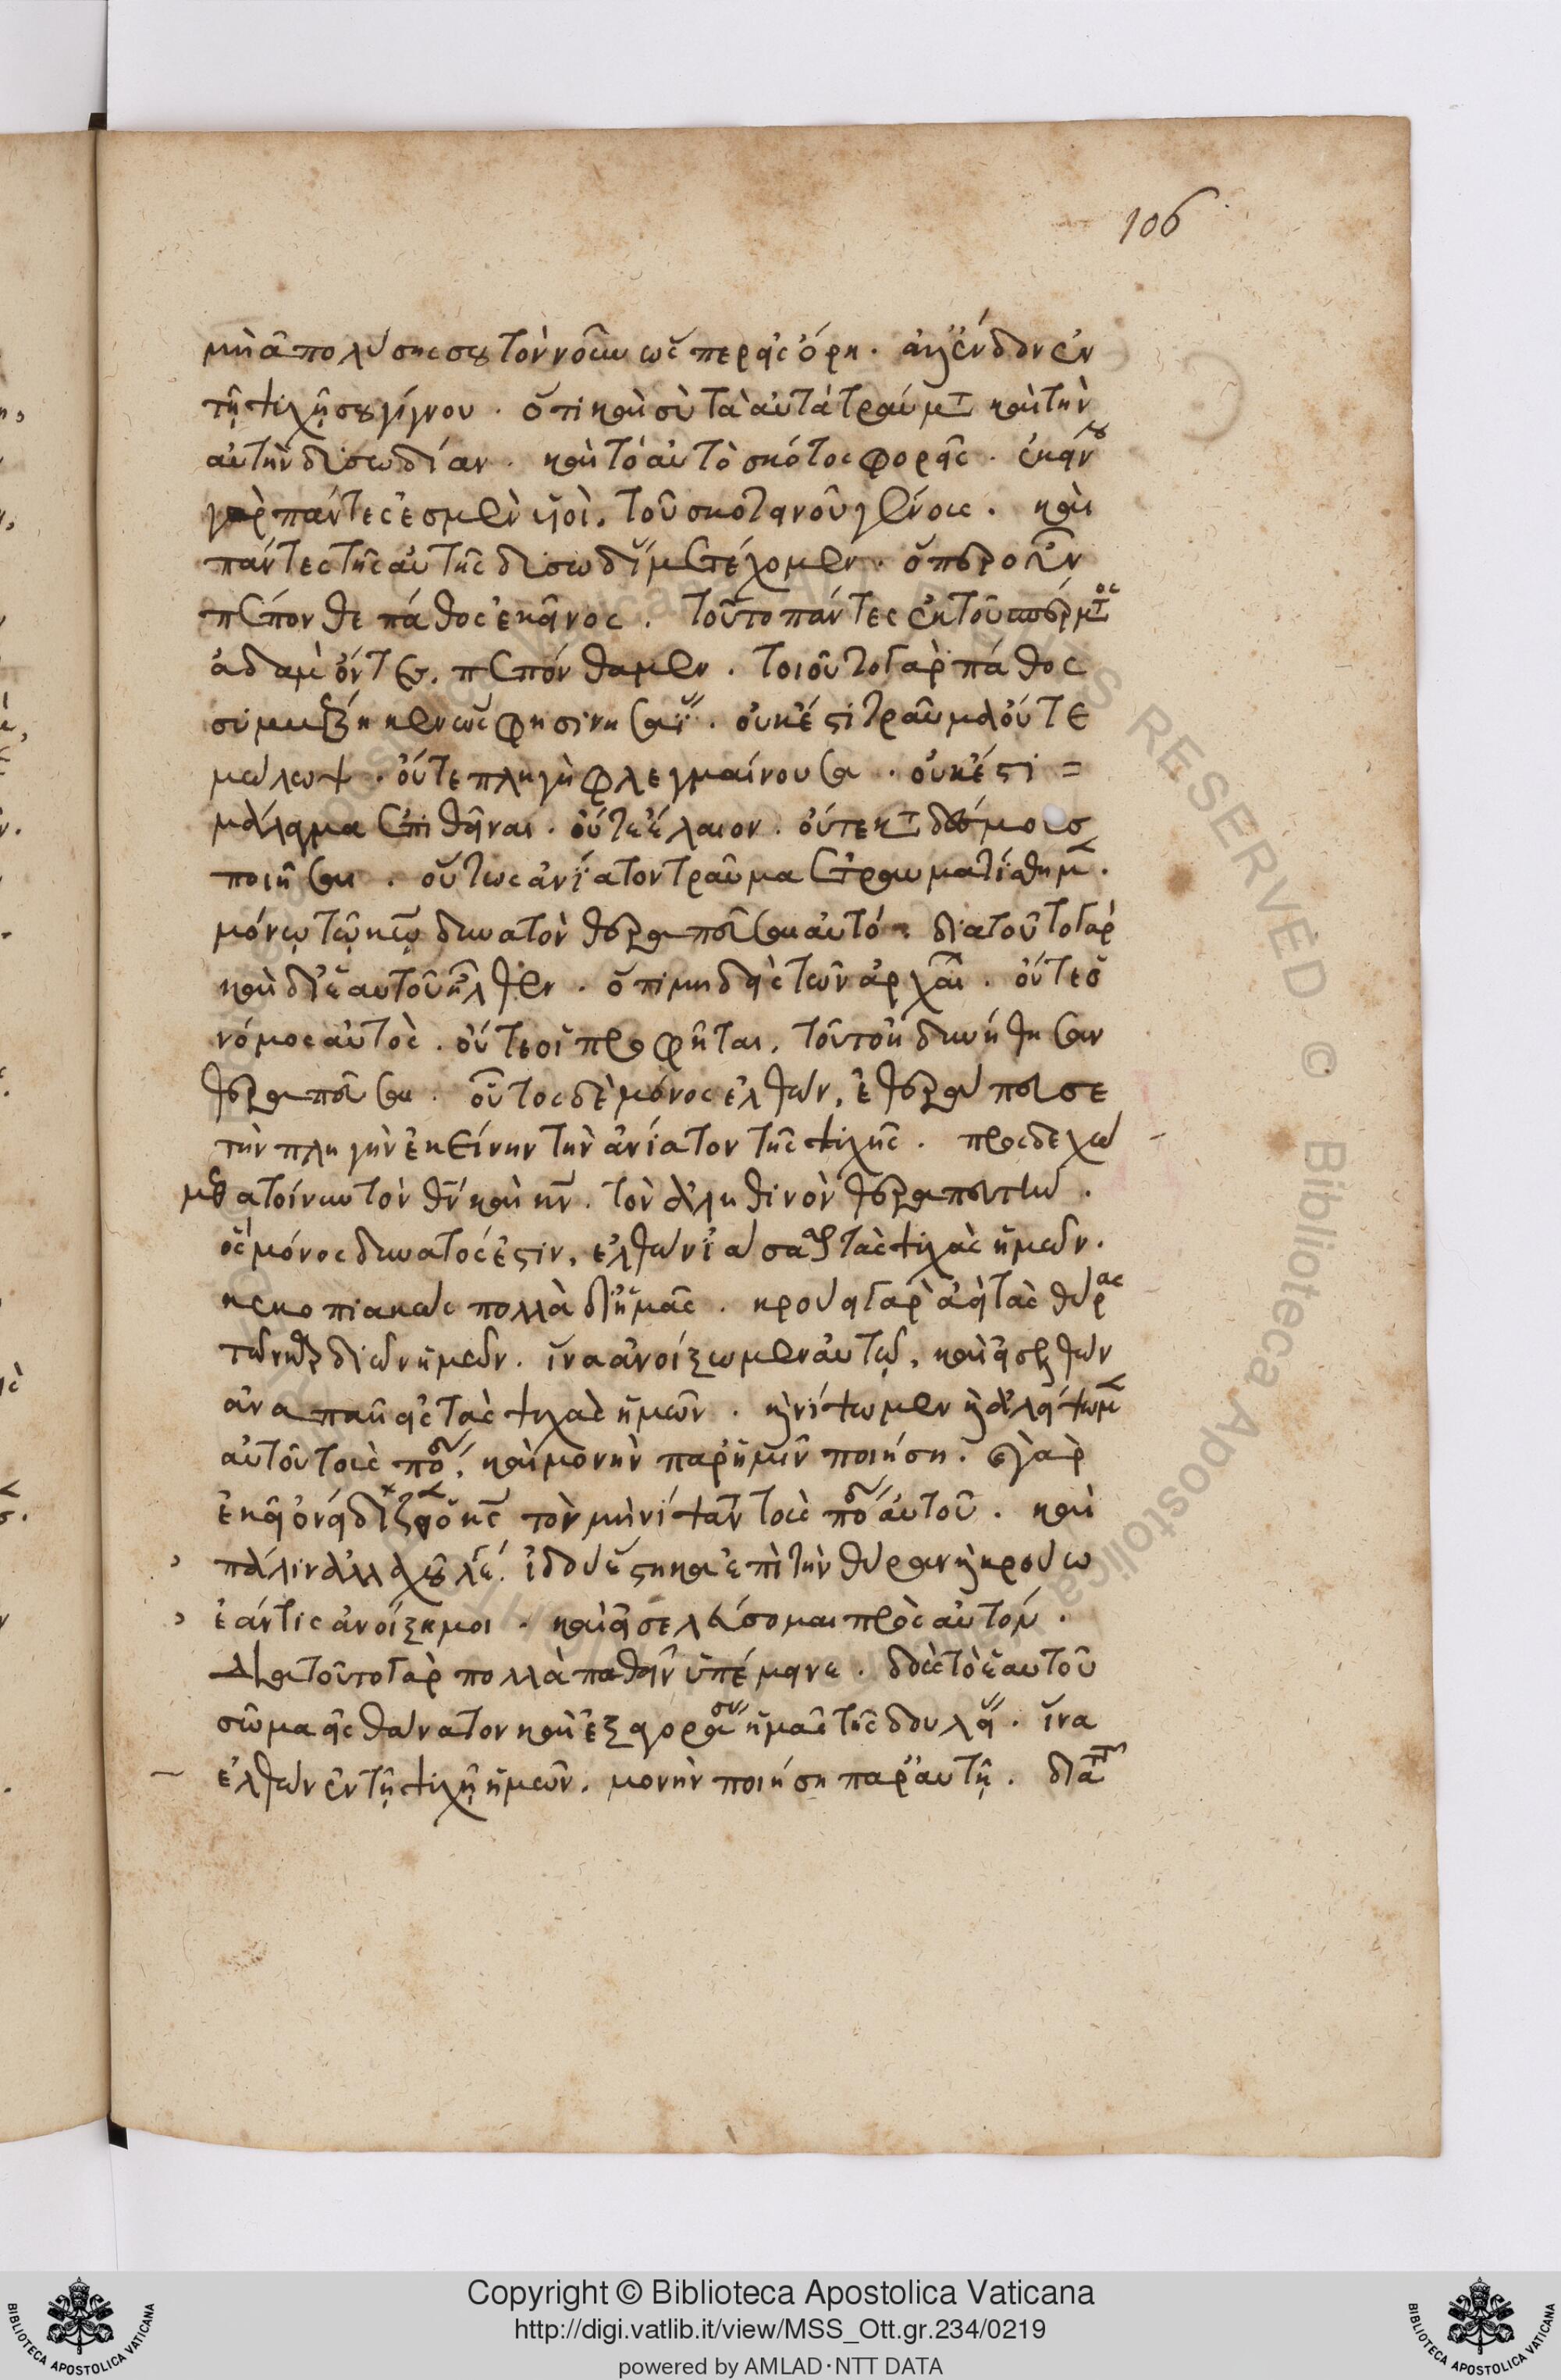 106
μὴ ἀπολύσης σου τὸν νοῦν ὥσπερ εἰς ὄρη. ἀλλ' ἔνδον ἐν
τῆ ψυχῆ σου γίγνου. ὅτι καὶ σὺ τὰ αὐτὰ τραύματ καὶ τὴν
αὐτὴν δυσωδίαν. καὶ τὸ αὐτὸ σκότος φορεῖς. ἐκείνου
γὰρ πάντες ἐσμὲν υἱοὶ, τοῦ σκοτεινοῦ γένους. καὶ
πάντες τῆς αὐτῆς δυσωδί μετέχομεν. ὅπερ οὖν
πέπονθε πάθος ἐκεῖνος. τοῦτο πάντες ἐκ τοῦ σπέρματος
ἀδαμ ὄντες, πεπόνθαμεν. τοιοῦτο γὰρ πάθος
συμβέβηκεν ὥς φησιν ησαΐ. οὐκ ἔστι τραῦμα οὔτε
μώλωψ. οὔτε πληγὴ φλεγμαίνουσα. οὐκ ἔστι =
μάλαγμα ἐπιθεῖναι. οὔτε ἔλαιον. οὔτε κατ δέσμους
ποιῆσαι. οὕτως ἀνίατον τραῦμα ἐτραυματίσθημ.
μόνω τῶ κω δυνατὸν θεραπεῦσαι αὐτό. διατοῦτο γὰρ
καὶ δι' ἑαυτοῦ ἦλθεν. ὅτι μηδεὶς τῶν ἀρχαί. οὔτε ὁ
νόμος αὐτὸς. οὔτε οἱ προφῆται, τοῦτο ἠδυνήθησαν
θεραπεῦσαι. οὗτος δὲ μόνος ἐλθὼν, ἐθεράπευσε
τὴν πληγὴν ἐκείνην τὴν ἀνίατον τῆς ψυχῆς. προςδεχώ
μεθα τοίνυν τὸν θν καὶ κν. τὸν ἀληθινὸν θεραπευτὴν.
ὃς μόνος δυνατός ἐστιν, ἐλθὼν ἰάσασθαι τὰς ψυχὰς ἡμῶν.
κεκοπιακὼς πολλὰ δι' ἡμᾶς. κρούει γὰρ ἀεὶ τὰς θύρας
τῶν καρδιῶν ἡμῶν. ἵνα ἀνοίξωμεν αὐτῷ, καὶ εἰσελθὼν
ἀναπαῆ εἰς τὰς ψυχὰς ἡμῶν. κ νίψωμεν κ ἀλείψωμ
αὐτοῦ τοὺς πόδ, καὶ μονὴν παρ' ἡμῖν ποιήση. γὰρ
ἐκεῖ ὀνειδίζει ὁ κς τὸν μὴ νίψαντ τοὺς πόδ αὐτοῦ. καὶ
πάλιν ἀλλαχοῦ λέ. ἰδοὺ ἕστηκα ἐπὶ τὴν θύραν κ κρούω
ἐάν τις ἀνοίξη μοι. καὶ εἰσελεύσομαι πρὸς αὐτόν.
Δια τοῦτο γὰρ πολλὰ παθεῖν ὑπέμεινε. δοὺς τὸ ἑαυτοῦ
σῶμα εἰς θάνατον καὶ ἐξαγοράσ ἡμᾶς τῆς δουλεί. ἵνα
ἐλθὼν ἐν τῆ ψυχῆ ἡμῶν, μονὴν ποιήση παρ' αὐτῆ. διὰ
RESERVED © Biblioteca Apostolica
Copyright © Biblioteca Apostolica Vaticana
http://digi.vatlib.it/view/MSS_Ott.gr.234/0219
powered by AMLAD·NTT DATA
BIBLIOTECA APOSTOLICA VATICANA
BIBLIOTECA APOSTOLICA VATICANA